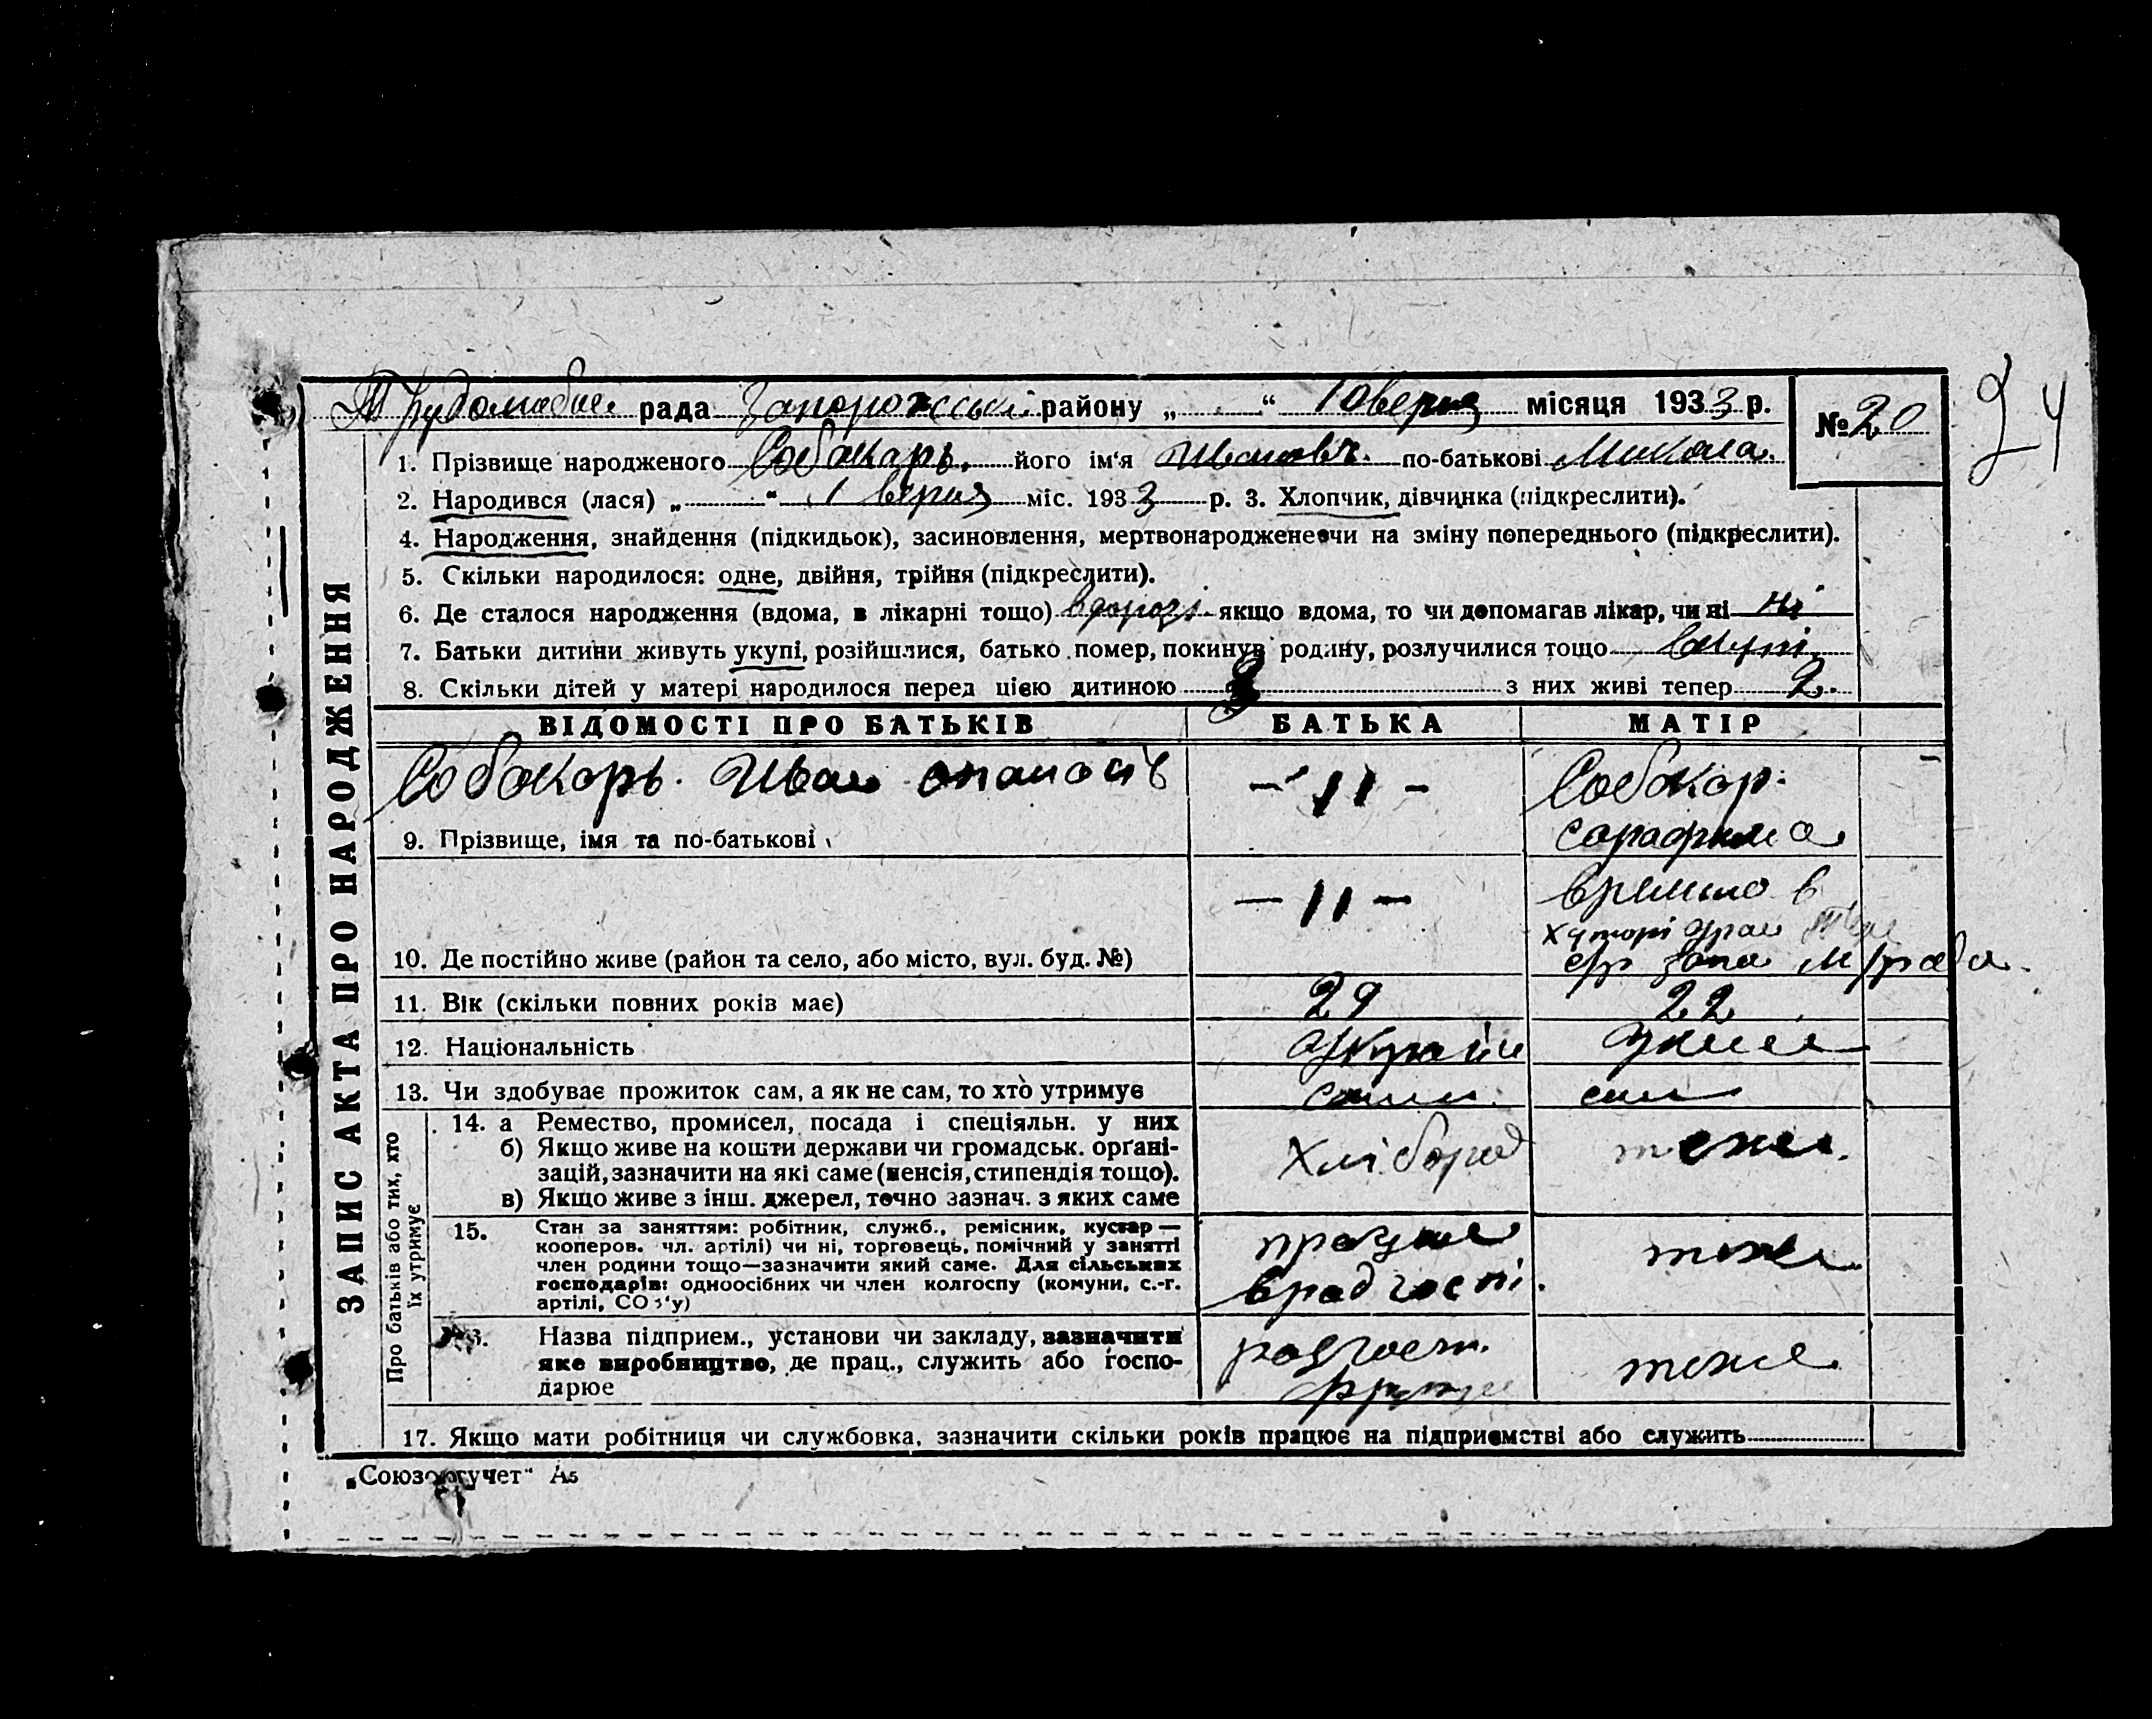 рада Запорожський району „ “ 10 вериз місяця 1933 р.
№ 20
24
1. Прізвище народженого Собакарь. його ім‘я Иванович. по-батькові Микола.
2. Народився (лася) „ “ 1 вериз міс. 1933 р. 3. Хлопчик, дівчинка (підкреслити).
4. Народження, знайдення (підкидьок), засиновлення, мертвонароджене чи на зміну попереднього (підкреслити).
5. Скільки народилося: одне, двійня, трійня (підкреслити).
6. Де сталося народження (вдома, в лікарні тощо) вдорозі якщо вдома, то чи допомагав лікар, чи ні ні
7. Батьки дитини живуть укупі, розійшлися, батько помер, покинув родину, розлучилися тощо вкупі
8. Скільки дітей у матері народилося перед цією дитиною 3 з них живі тепер 2.
ВІДОМОСТІ ПРО БАТЬКІВ БАТЬКА МАТІР
Собакорь. Иван опанасів - 11 - Собакор.
9. Прізвище, імя та по-батькові сарафима
- 11 - времено в
хуторі
10. Де постійно живе (район та село, або місто, вул. буд. №) запо м/рада.
11. Вік (скільки повних років має) 29 22
12. Національність
13. Чи здобуває прожиток сам, а як не сам, то хто утримує сами. сам
14. а Ремество, промисел, посада і спеціяльн. у них
б) Якщо живе на кошти держави чи громадськ. органі-
зацій, зазначити на які саме (пенсія, стипендія тощо).
в) Якщо живе з інш. джерел, точно зазнач. з яких саме
хлібороб тоже.
15. Стан за заняттям: робітник, служб., ремісник, кустар —
кооперов. чл. артілі) чи ні, торговець, помічний у занятті
член родини тощо—зазначити який саме. Для сільських
господарів: одноосібних чи член колгоспу (комуни, с.-г.
артілі, СОЗ‘у)
працює тоже
в радгоспі.
16. Назва підприєм., установи чи закладу, зазначити
яке виробництво, де прац., служить або госпо-
дарює
радгосп. тоже
17. Якщо мати робітниця чи службовка, зазначити скільки років працює на підприємстві або служить
ЗАПИС АКТА ПРО НАРОДЖЕННЯ
Про батьків або тих, хто
їх утримує
„Союзоргучет“ А5